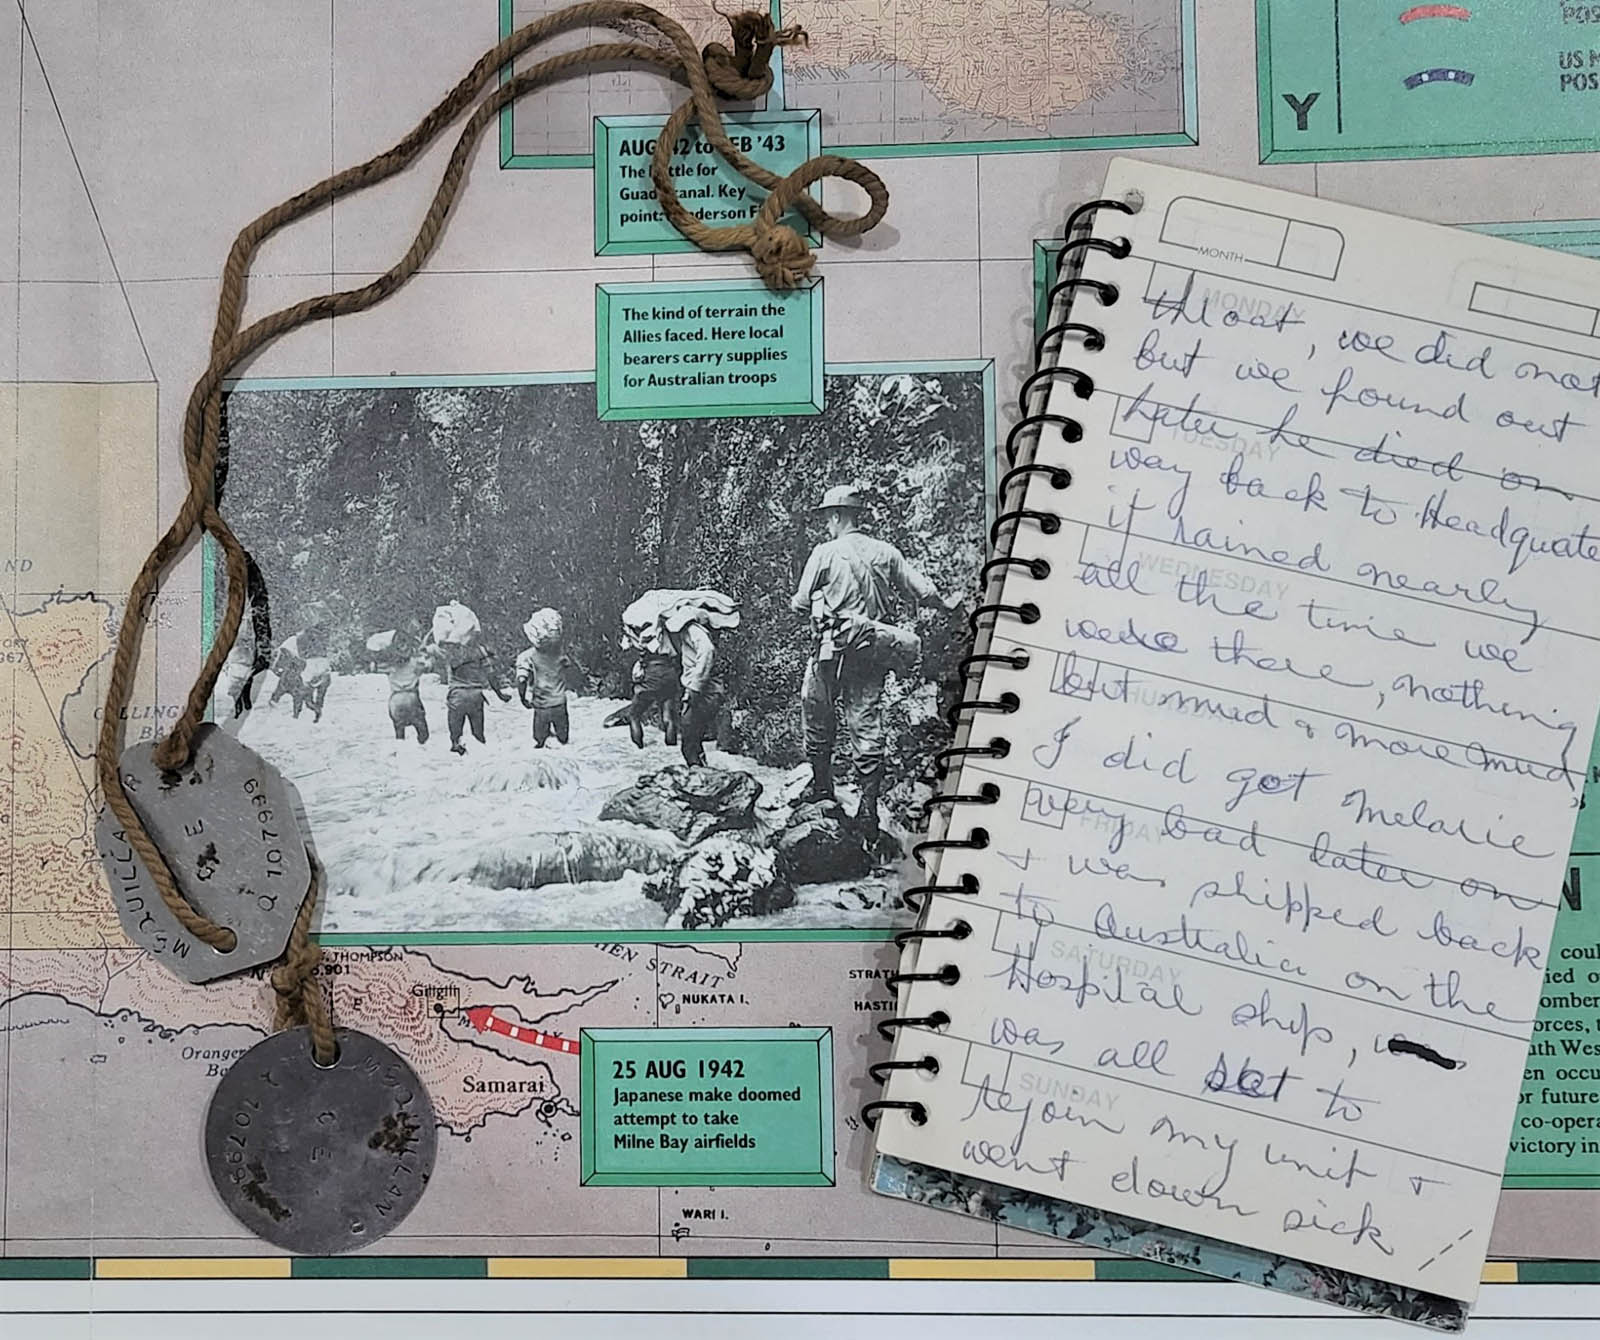 POS
US M
POS
Y
AUG '42 to FEB '43
The Battle for
Guadalcanal. Key
point: Henderson Fi
The kind of terrain the
Allies faced. Here local
bearers carry supplies
for Australian troops
MONTH
MONDAY
throat, we did not
but we found out
TUESDAY
later he died on
way back to Headquate
it rained nearly
WEDNESDAY
all the time we
were there, nothing
THURSDAY
but mud & more mud,
I did get melarie
FRIDAY
very bad later on
& was shipped back
to Australia on the
SATURDAY
Hospital ship,
was all set to
SUNDAY
rejoin my unit &
went down sick
ND
ORY
967)
COLLING
BA
R
MCQUILLA
CE
Q 107999
THOMPSON
6,901
HEN STRAIT
Giligili
NUKATA I.
STRATH
HASTI
Oranger
Ba
Samarai
25 AUG 1942
Japanese make doomed
attempt to take
Milne Bay airfields
WARI I.
CE
107999
N
coul
ied o
omber
orces, t
uth Wes
en occu
or future
co-opera
victory in